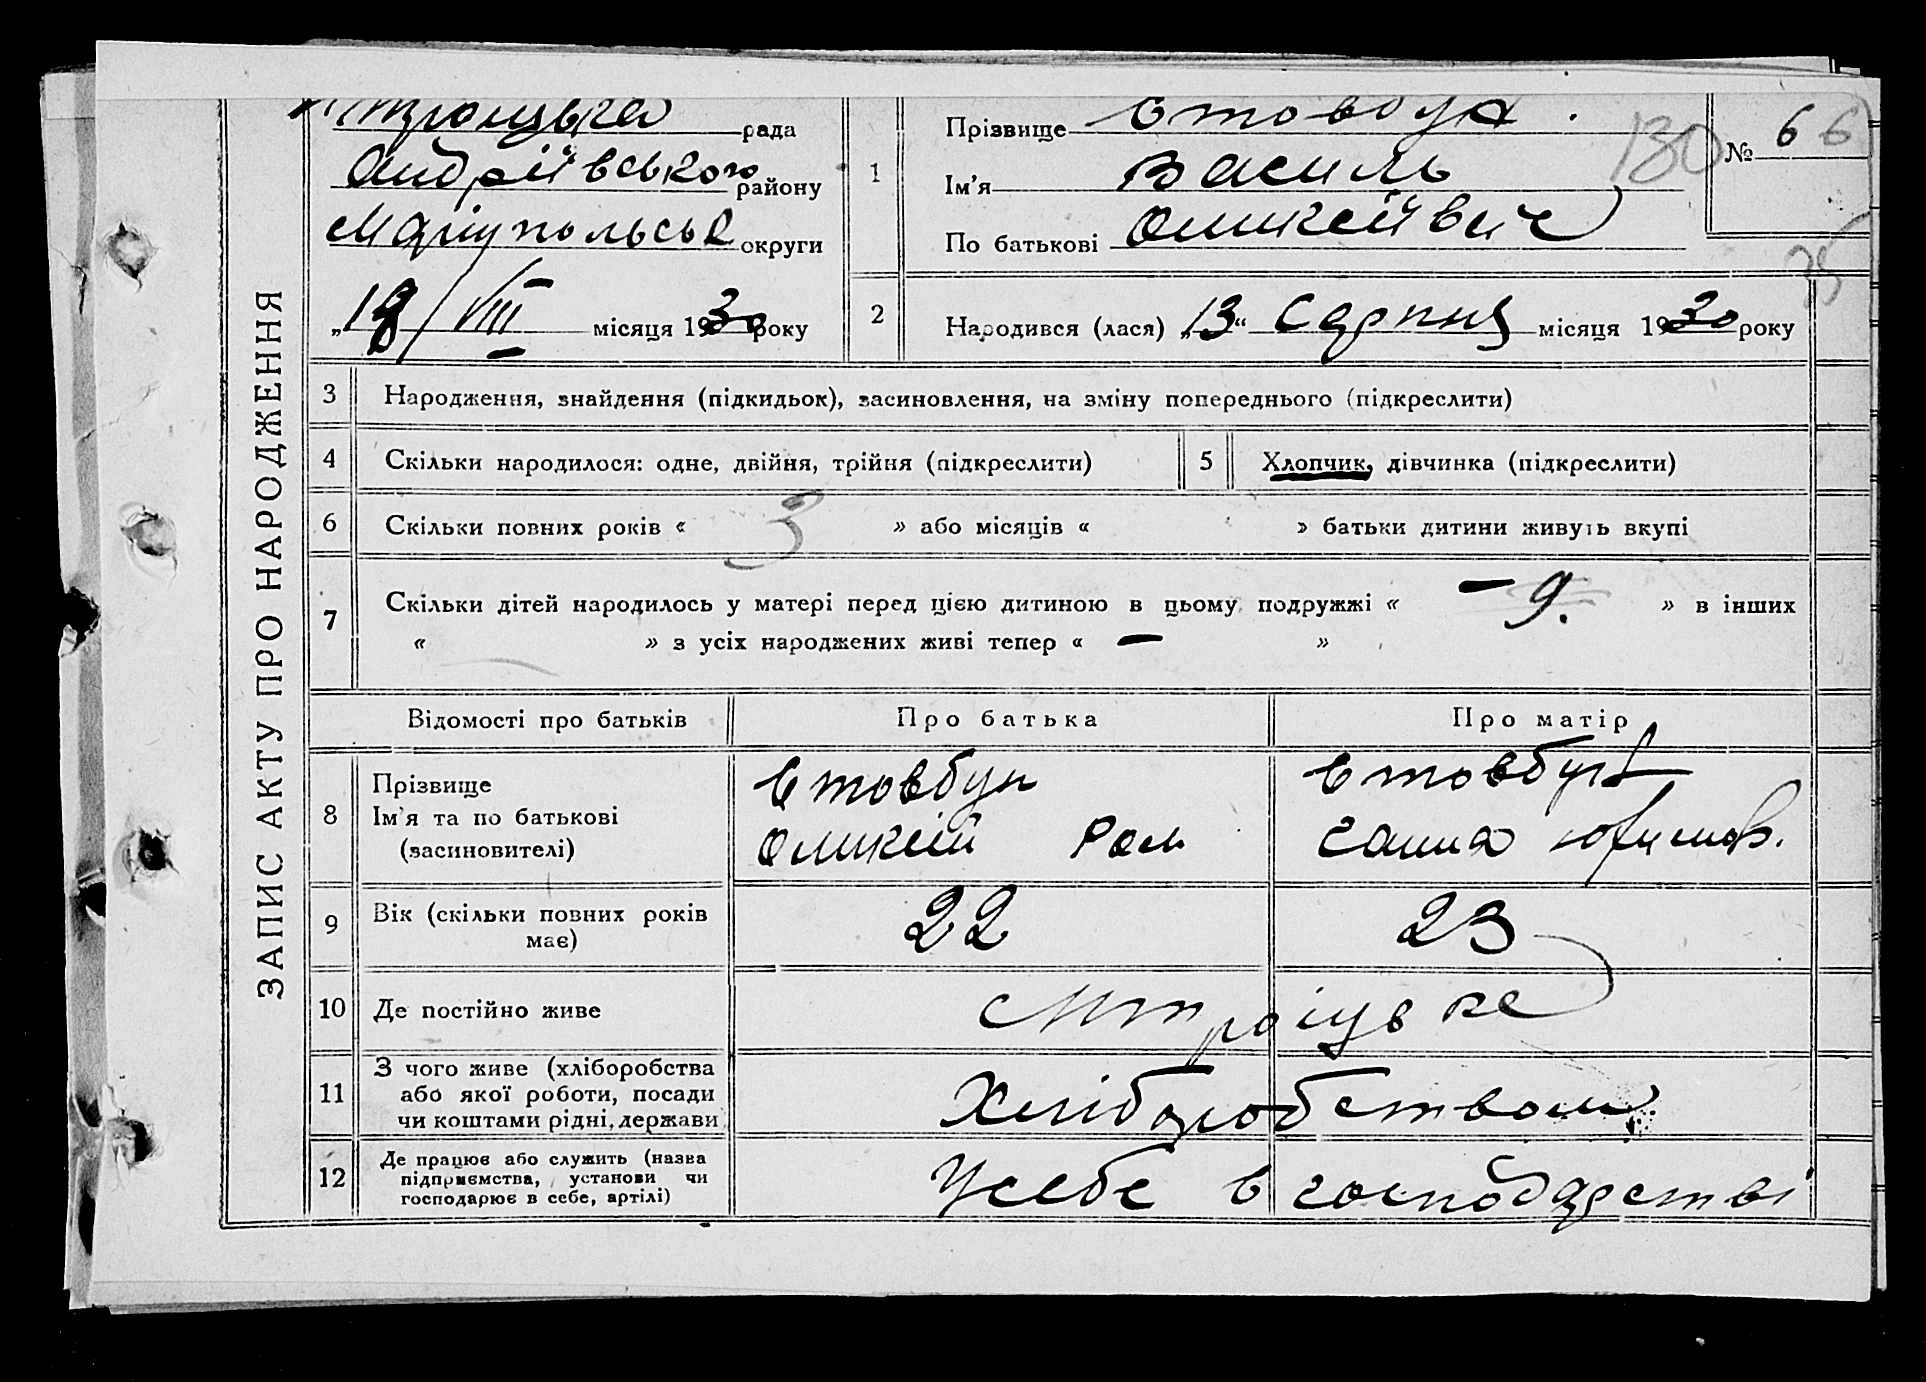 рада
Андріївського району
Маріупольськ округи
„18/VIII місяця 1930 року
1
Прізвище Стовбун.
Ім'я Василь
По батькові Оликсійвич
130
№ 66
2
Народився (лася) „13“ Серпня місяця 1930 року
ЗАПИС АКТУ ПРО НАРОДЖЕННЯ
3 Народження, знайдення (підкидьок), засиновлення, на зміну попереднього (підкреслити)
4 Скільки народилося: одне, двійня, трійня (підкреслити) 5 Хлопчик, дівчинка (підкреслити)
6 Скільки повних років « 3 » або місяців « » батьки дитини живуть вкупі
7 Скільки дітей народилось у матері перед цією дитиною в цьому подружжі « — 9. » в інших
« » з усіх народжених живі тепер « — »
Відомості про батьків Про батька Про матір
8 Прізвище Стовбун Стовбун
Ім'я та по батькові
(засиновителі) Оликсій Ром Ганна Юхимов.
9 Вік (скільки повних років 22 23
має)
10 Де постійно живе
11 З чого живе (хліборобства
або якої роботи, посади Хліборобством
чи коштами рідні, держави
12 Де працює або служить (назва
підприємства, установи чи Усебе в господарстві
господарює в себе, артілі)